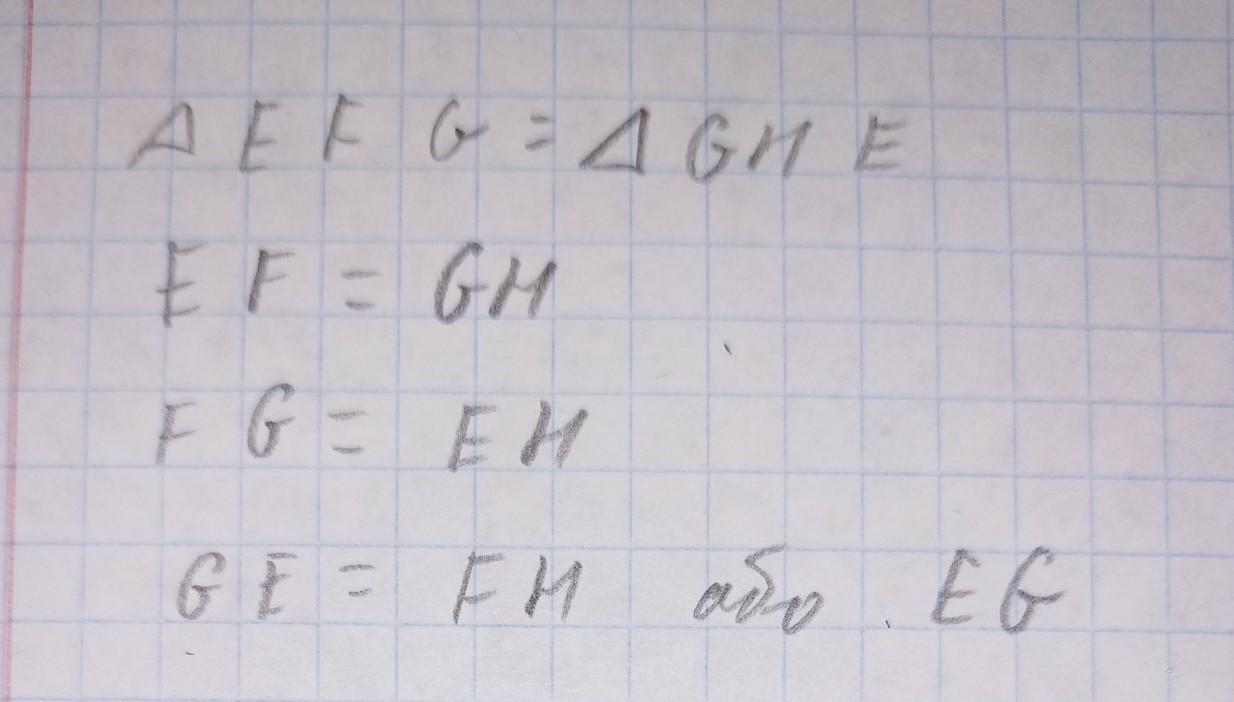 Δ E F G = Δ G H E
E F = G H
F G = E H
G E = F H або E G